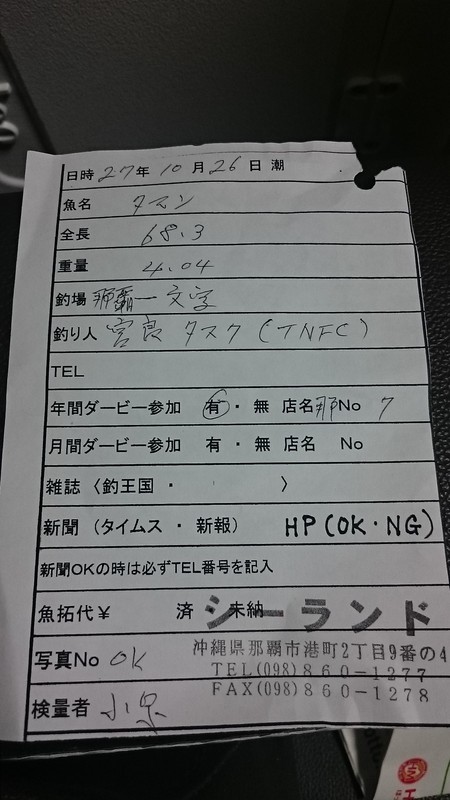 日時 27年 10月 26日 潮
魚名 タマン
全長 68.3
重量 4.04
釣場 那覇一文字
釣り人 宮良 タスク (TNFC)
TEL
年間ダービー参加 有・無 店名 那 No 7
月間ダービー参加 有・無 店名 No
雑誌〈釣王国・ 〉
新聞（タイムス・新報） HP(OK・NG)
新聞OKの時は必ずTEL番号を記入
魚拓代￥ 済 未納
シーランド
写真No OK
沖縄県那覇市港町2丁目9番の4
TEL(098)860-1277
FAX(098)860-1278
検量者